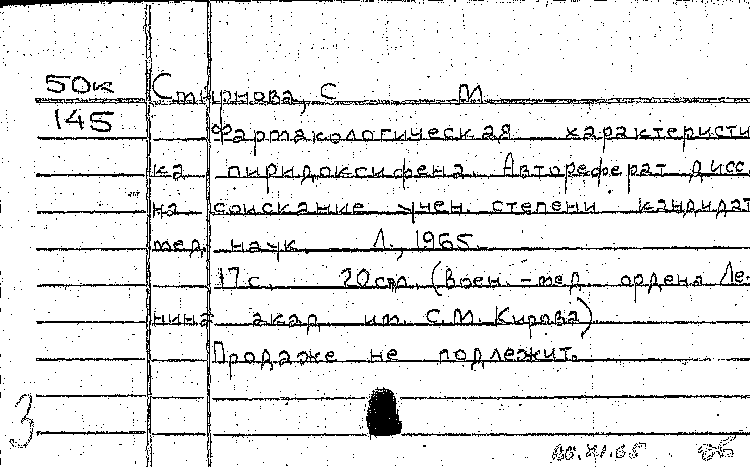 50к Смирнова, С М
145 Фармакологическая характеристи
ка пиридоксифена. Автореферат дисс.
на соискание учен. степени кандидат
мед. наук. Л., 1965.
17 с. 20 см. (Воен.-мед. ордена Ле-
нина акад им. С.М. Кирова)
Продаже не подлежит.
3